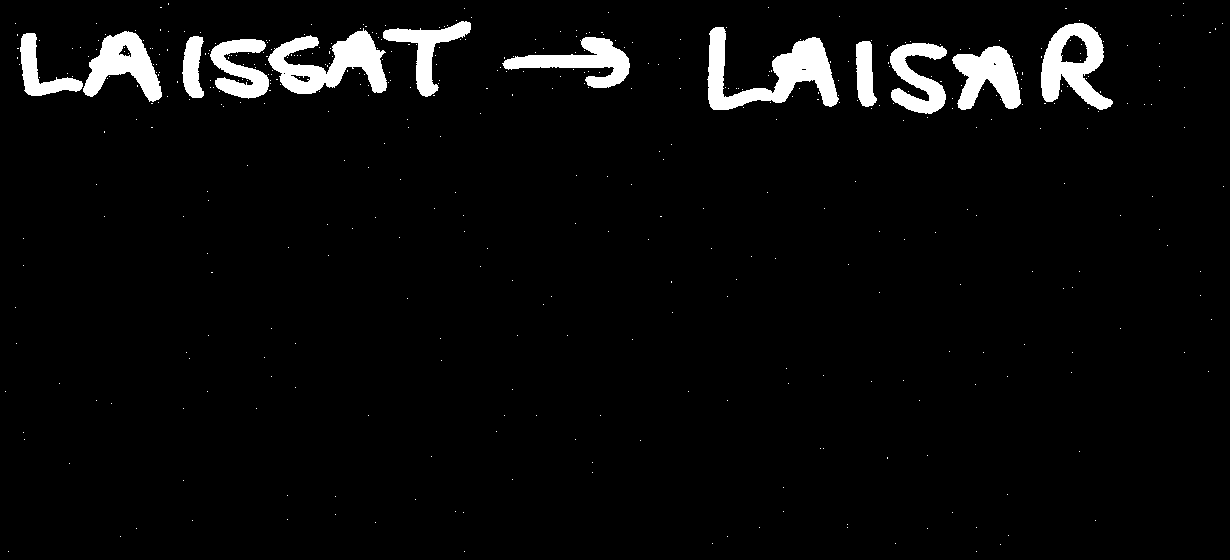 LAISSAT → LAISAR